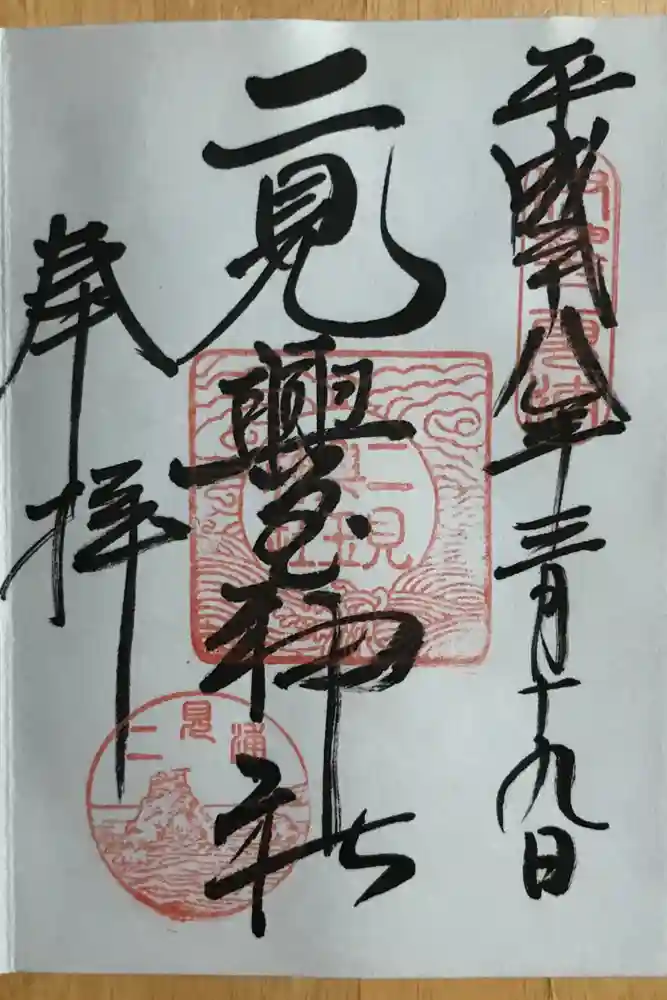 平成廿八年三月十九日
二見興玉神社
奉拝
二見
興玉
神社
二見浦